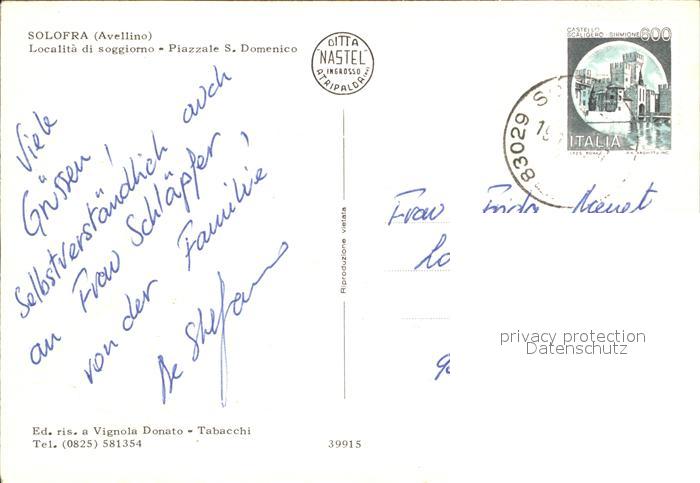 SOLOFRA (Avellino)
Località di soggiorno - Piazzale S. Domenico
DITTA
"NASTEL"
INGROSSO
ATRIPALDA (AV)
CASTELLO
SCALIGERO - SIRMIONE 600
ITALIA
83029 S
Viele
Grüssen! auch
Selbstverständlich
an Frau Schläpfer
von der Familie!
De Stefano
Riproduzione vietata
Frau Frida
privacy protection
Datenschutz
Ed. ris. a Vignola Donato - Tabacchi
Tel. (0825) 581354
39915